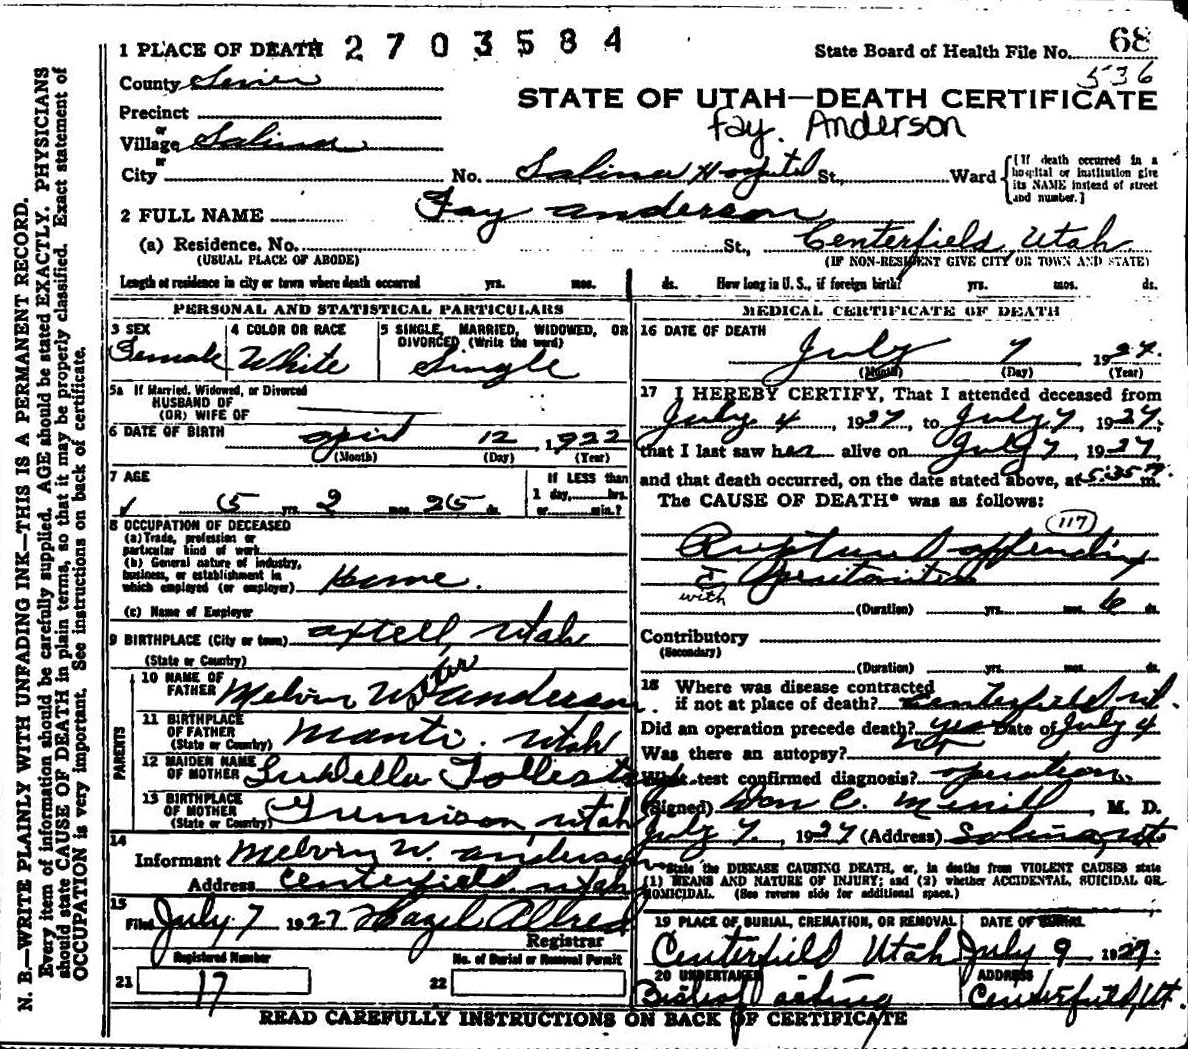 1 PLACE OF DEATH 2703584
State Board of Health File No. 68
536
County Sevier
STATE OF UTAH—DEATH CERTIFICATE
Fay. Anderson
Precinct
or
Village Salina
or
City No. Salina Hospital St., Ward
[If death occurred in a hospital or institution give its NAME instead of street and number.]
2 FULL NAME Fay Anderson
(a) Residence. No. St., Centerfield, Utah
(USUAL PLACE OF ABODE) (IF NON-RESIDENT GIVE CITY OR TOWN AND STATE)
Length of residence in city or town where death occurred yrs. mos. ds. How long in U. S., if foreign birth? yrs. mos. ds.
PERSONAL AND STATISTICAL PARTICULARS
3 SEX Female
4 COLOR OR RACE White
5 SINGLE, MARRIED, WIDOWED, OR DIVORCED (Write the word) Single
5a If Married, Widowed, or Divorced
HUSBAND OF
(OR) WIFE OF
6 DATE OF BIRTH April 12, 1922
(Month) (Day) (Year)
7 AGE 5 yrs. 2 mos. 25 ds.
If LESS than
1 day, hrs.
or min.?
8 OCCUPATION OF DECEASED
(a) Trade, profession or
particular kind of work
(b) General nature of industry,
business, or establishment in
which employed (or employer) Home.
(c) Name of Employer
9 BIRTHPLACE (City or town) Axtell, Utah
(State or Country)
PARENTS
10 NAME OF FATHER Melvin Anderson
11 BIRTHPLACE OF FATHER (State or Country) Manti. Utah
12 MAIDEN NAME OF MOTHER
13 BIRTHPLACE OF MOTHER (State or Country) Gunnison, Utah
14
Informant Melvin W. Anderson
Address Centerfield. Utah
15
Filed July 7 1927 Hazel Allred
Registrar
Registered Number
21 17
No. of Burial or Removal Permit
22
MEDICAL CERTIFICATE OF DEATH
16 DATE OF DEATH July 7 1927.
(Month) (Day) (Year)
17 I HEREBY CERTIFY, That I attended deceased from
July 4, 1927, to July 7, 1927,
that I last saw her alive on July 7, 1927,
and that death occurred, on the date stated above, at 5:35 P m.
The CAUSE OF DEATH* was as follows:
117
Ruptured appendix
c Peritonitis
with
(Duration) yrs. mos. 6 ds.
Contributory
(Secondary)
(Duration) yrs. mos. ds.
18 Where was disease contracted
if not at place of death? Centerfield, Ut.
Did an operation precede death? yes Date of July 4
Was there an autopsy? No
What test confirmed diagnosis? operation.
(Signed) Don C. Merrill, M. D.
July 7, 1927 (Address) Salina, Ut
*State the DISEASE CAUSING DEATH, or, in deaths from VIOLENT CAUSES state
(1) MEANS AND NATURE OF INJURY; and (2) whether ACCIDENTAL, SUICIDAL OR
HOMICIDAL. (See reverse side for additional space.)
19 PLACE OF BURIAL, CREMATION, OR REMOVAL Centerfield Utah
DATE OF BURIAL July 9 1927.
20 UNDERTAKER Bishop acting
ADDRESS Centerfield, Ut.
READ CAREFULLY INSTRUCTIONS ON BACK OF CERTIFICATE
N. B.—WRITE PLAINLY WITH UNFADING INK—THIS IS A PERMANENT RECORD.
Every item of information should be carefully supplied. AGE should be stated EXACTLY. PHYSICIANS
should state CAUSE OF DEATH in plain terms, so that it may be properly classified. Exact statement of
OCCUPATION is very important. See instructions on back of certificate.